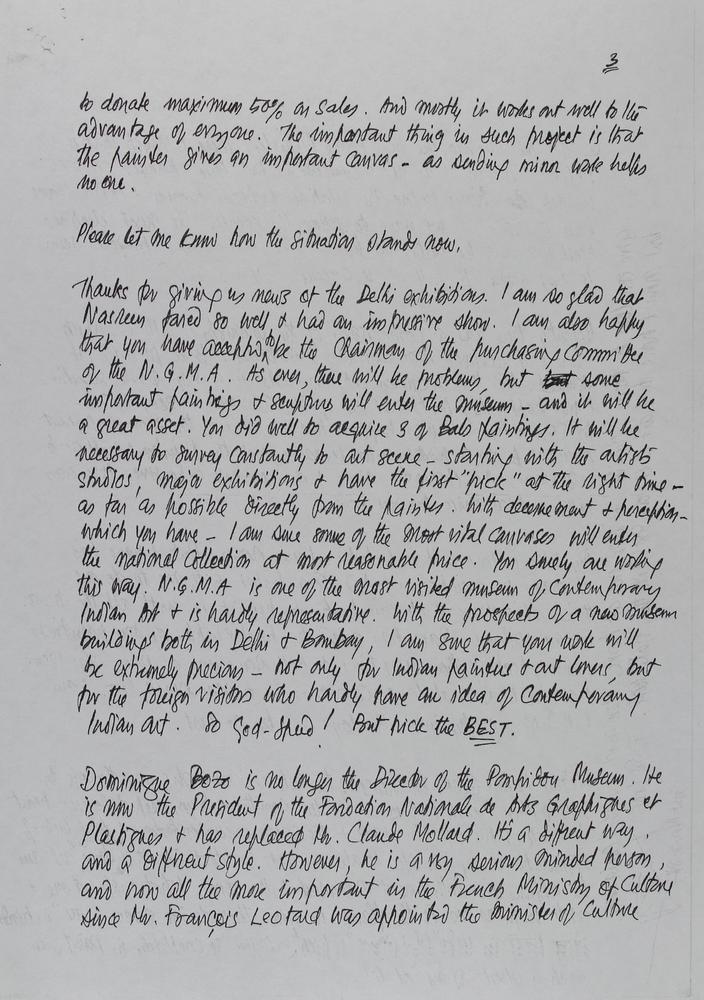 3
to donate maximum 50% on sales. And mostly it works out well to the
advantage of everyone. The important thing in such project is that
the painter gives an important canvas - as sending minor work helps
no one.
Please let me know how the situation stands now.
Thanks for giving us news of the Delhi exhibitions. I am so glad that
Nasreen fared so well & had an impressive show. I am also happy
that you have accepted to be the Chairman of the purchasing Committee
of the N.G.M.A. As ever, there will be problems, but some
important paintings & sculptures will enter the museum - and it will be
a great asset. You did well to acquire 3 of Bals paintings. It will be
necessary to survey constantly to art scene - starting with the artists
studios, major exhibitions & have the first "pick" at the right time -
as far as possible directly from the painter. With decernement & perception -
which you have - I am sure some of the most vital canvases will enter
the national Collection at most reasonable price. You surely are working
this way. N.G.M.A is one of the most visited museum of Contemporary
Indian Art & is hardly representative. With the prospects of a new museum
buildings both in Delhi & Bombay, I am sure that your work will
be extremely precious - not only for Indian painters & art lovers, but
for the foreign visitors who hardly have an idea of Contemporary
Indian art. So God-speed! But pick the BEST.
Dominique Bozo is no longer the Director of the Pompidou Museum. He
is now the President of the Fondation Nationale de Arts Graphiques et
Plastiques & has replaced Mr. Claude Mollard. It's a diffrent way,
and a different style. However, he is a very serious minded person,
and now all the more important in the French Ministry of Culture
since Mr. François Leotard was appointed the minister of Culture